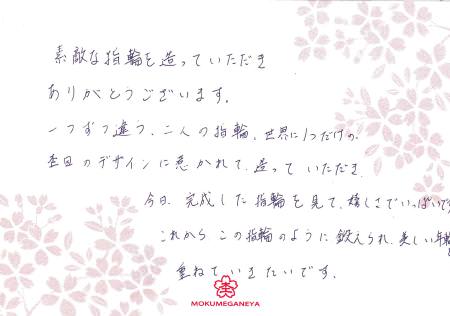 素敵な指輪を造っていただき
ありがとうございます。
一つずつ違う、二人の指輪、世界に1つだけの、
杢目のデザインに惹かれて、造っていただき、
今日、完成した指輪を見て、嬉しさでいっぱいです
これからこの指輪のように鍛えられ、美しい年輪を
重ねていきたいです。
MOKUMEGANEYA